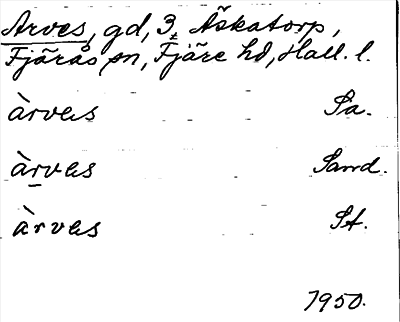 Arves, gd, 3, Äskatorp,
Fjärås sn, Fjäre hd, Hall. l.
àrvas Sa.
àrvas Sand.
àrvas St.
1950.